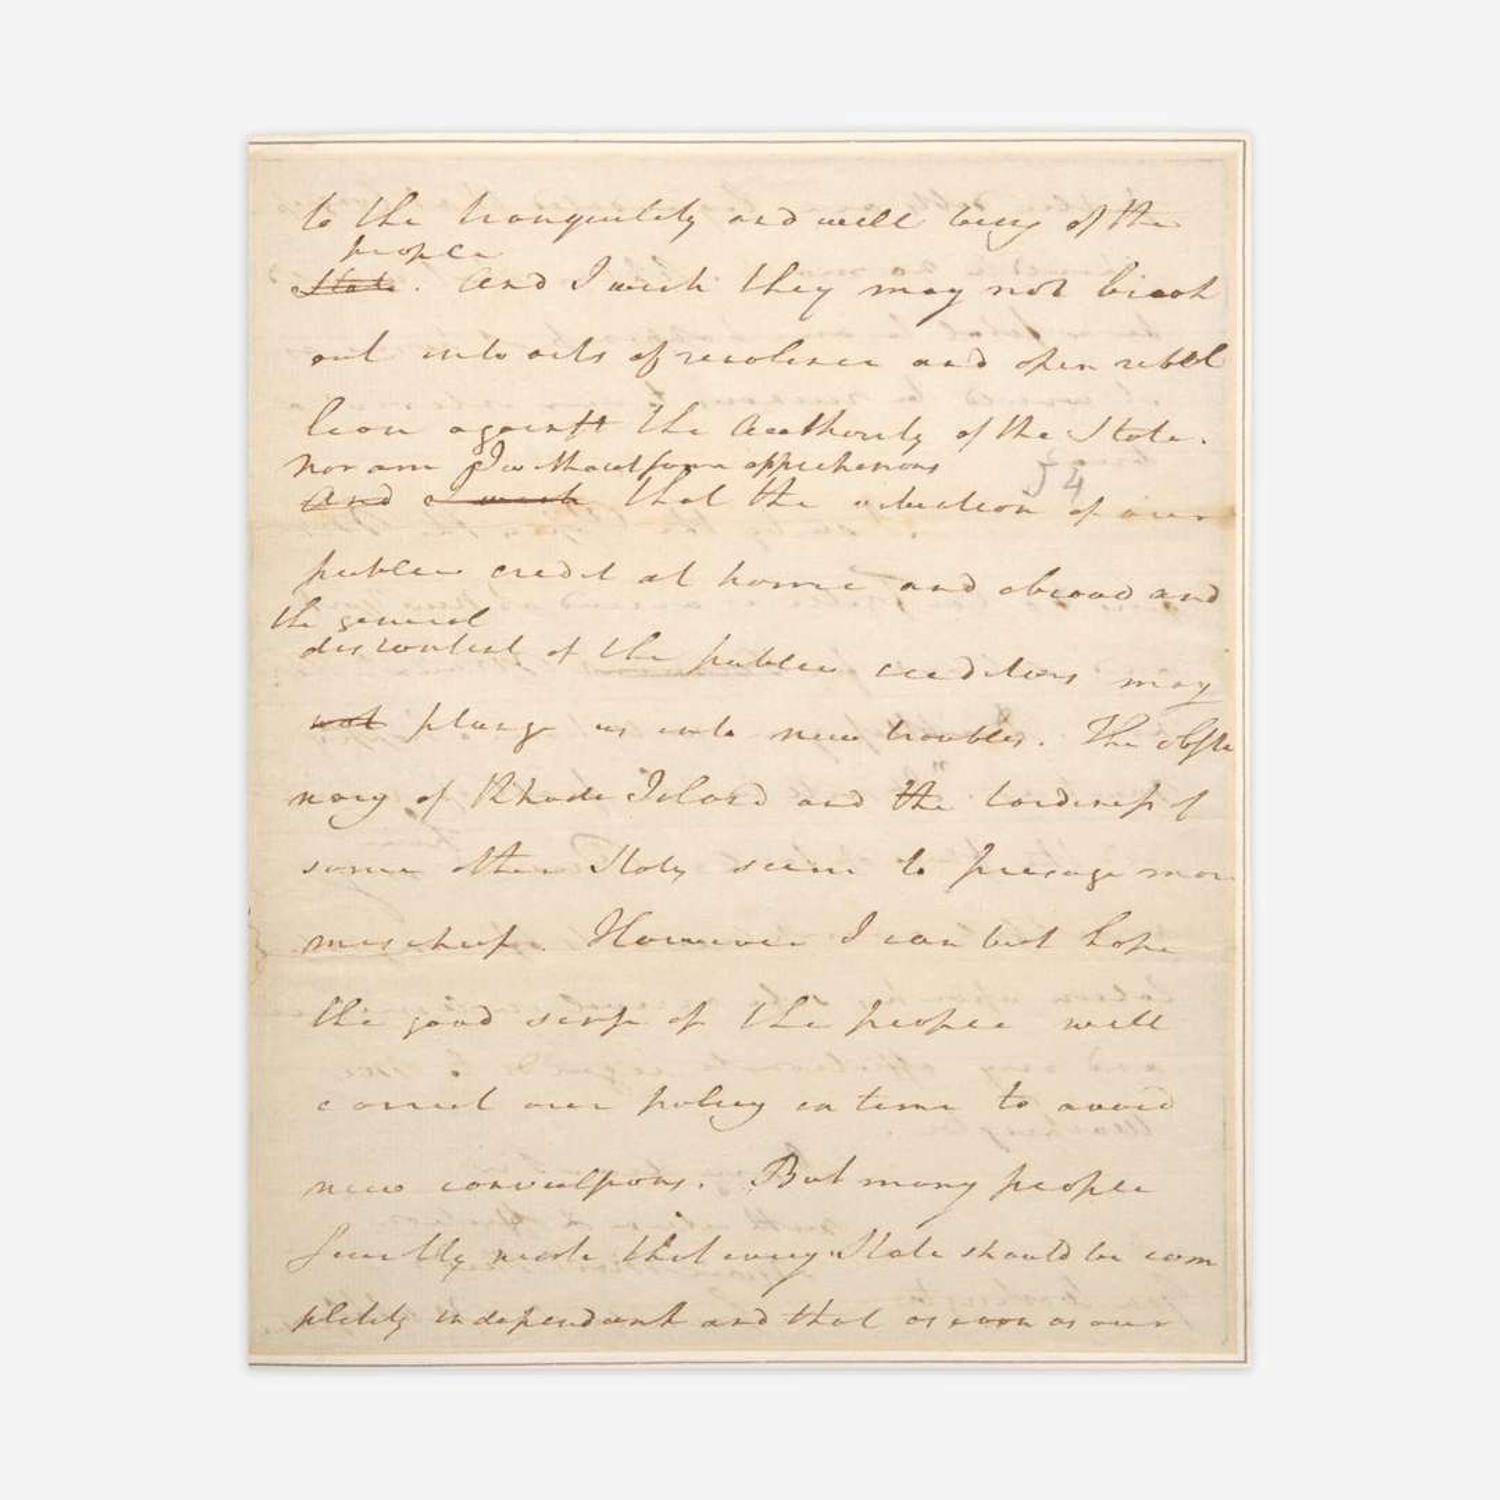 to the tranquility and well being of the
people
State. And I wish they may not break
out into acts of violence and open rebel
lion against the Authority of the State.
nor am I without some apprehensions
And I wish that the reduction of our
54
public credit at home and abroad and
the general
discontent of the public creditors may
not plunge us into new troubles. The obsti
nacy of Rhode Island and the tardiness of
some other States seem to presage more
mischief. However I can but hope
the good sense of the people will
correct our policy in time to avoid
new convulsions. But many people
secretly wish that every State should be com
pletely independant and that as soon as our